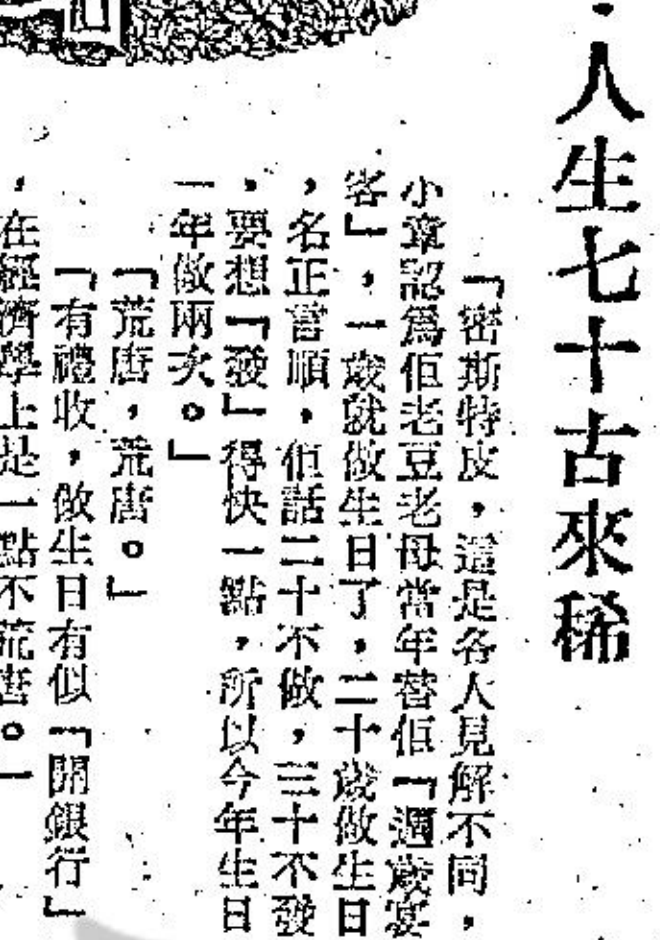 ·人生七十古來稀
「密斯特皮,這是各人見解不同,
小章認爲佢老豆老母當年替佢「週歲宴
客」,一歲就做生日了,二十歲做生日
,名正言順,佢話二十不做,三十不發
,要想「發」得快一點,所以今年生日
一年做兩次。」
「荒唐,荒唐。」
「有禮收,做生日有似「開銀行」
,在經濟學上是一點不荒唐。」